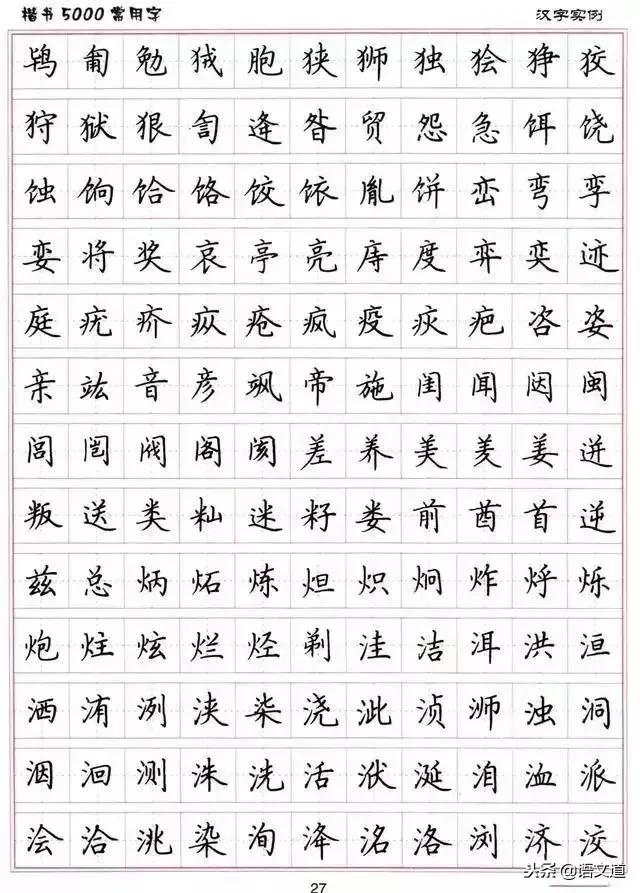 楷书5000常用字 汉字实例
鸨匍勉狨胞狭狮独狯狰狡
狩狱狠訇逄昝贸怨急饵饶
蚀饷饸饹饺饻胤饼峦弯孪
娈将奖哀亭亮庤度弈奕迹
庭疣疥疭疮疯疫疢疤咨姿
亲竑音彦飒帝施闺闻闼闽
闾闿阀阁阂差养美羑姜迸
叛送类籼迷籽娄前酋首逆
兹总炳炻炼炟炽炯炸烀烁
炮炷炫烂烃剃洼洁洱洪洹
洒洧洌浃柒浇泚浈浉浊洞
洇洄测洙洗活洑涎洎洫派
浍洽洮染洵洚洺洛浏济洨
27
头条@语文道